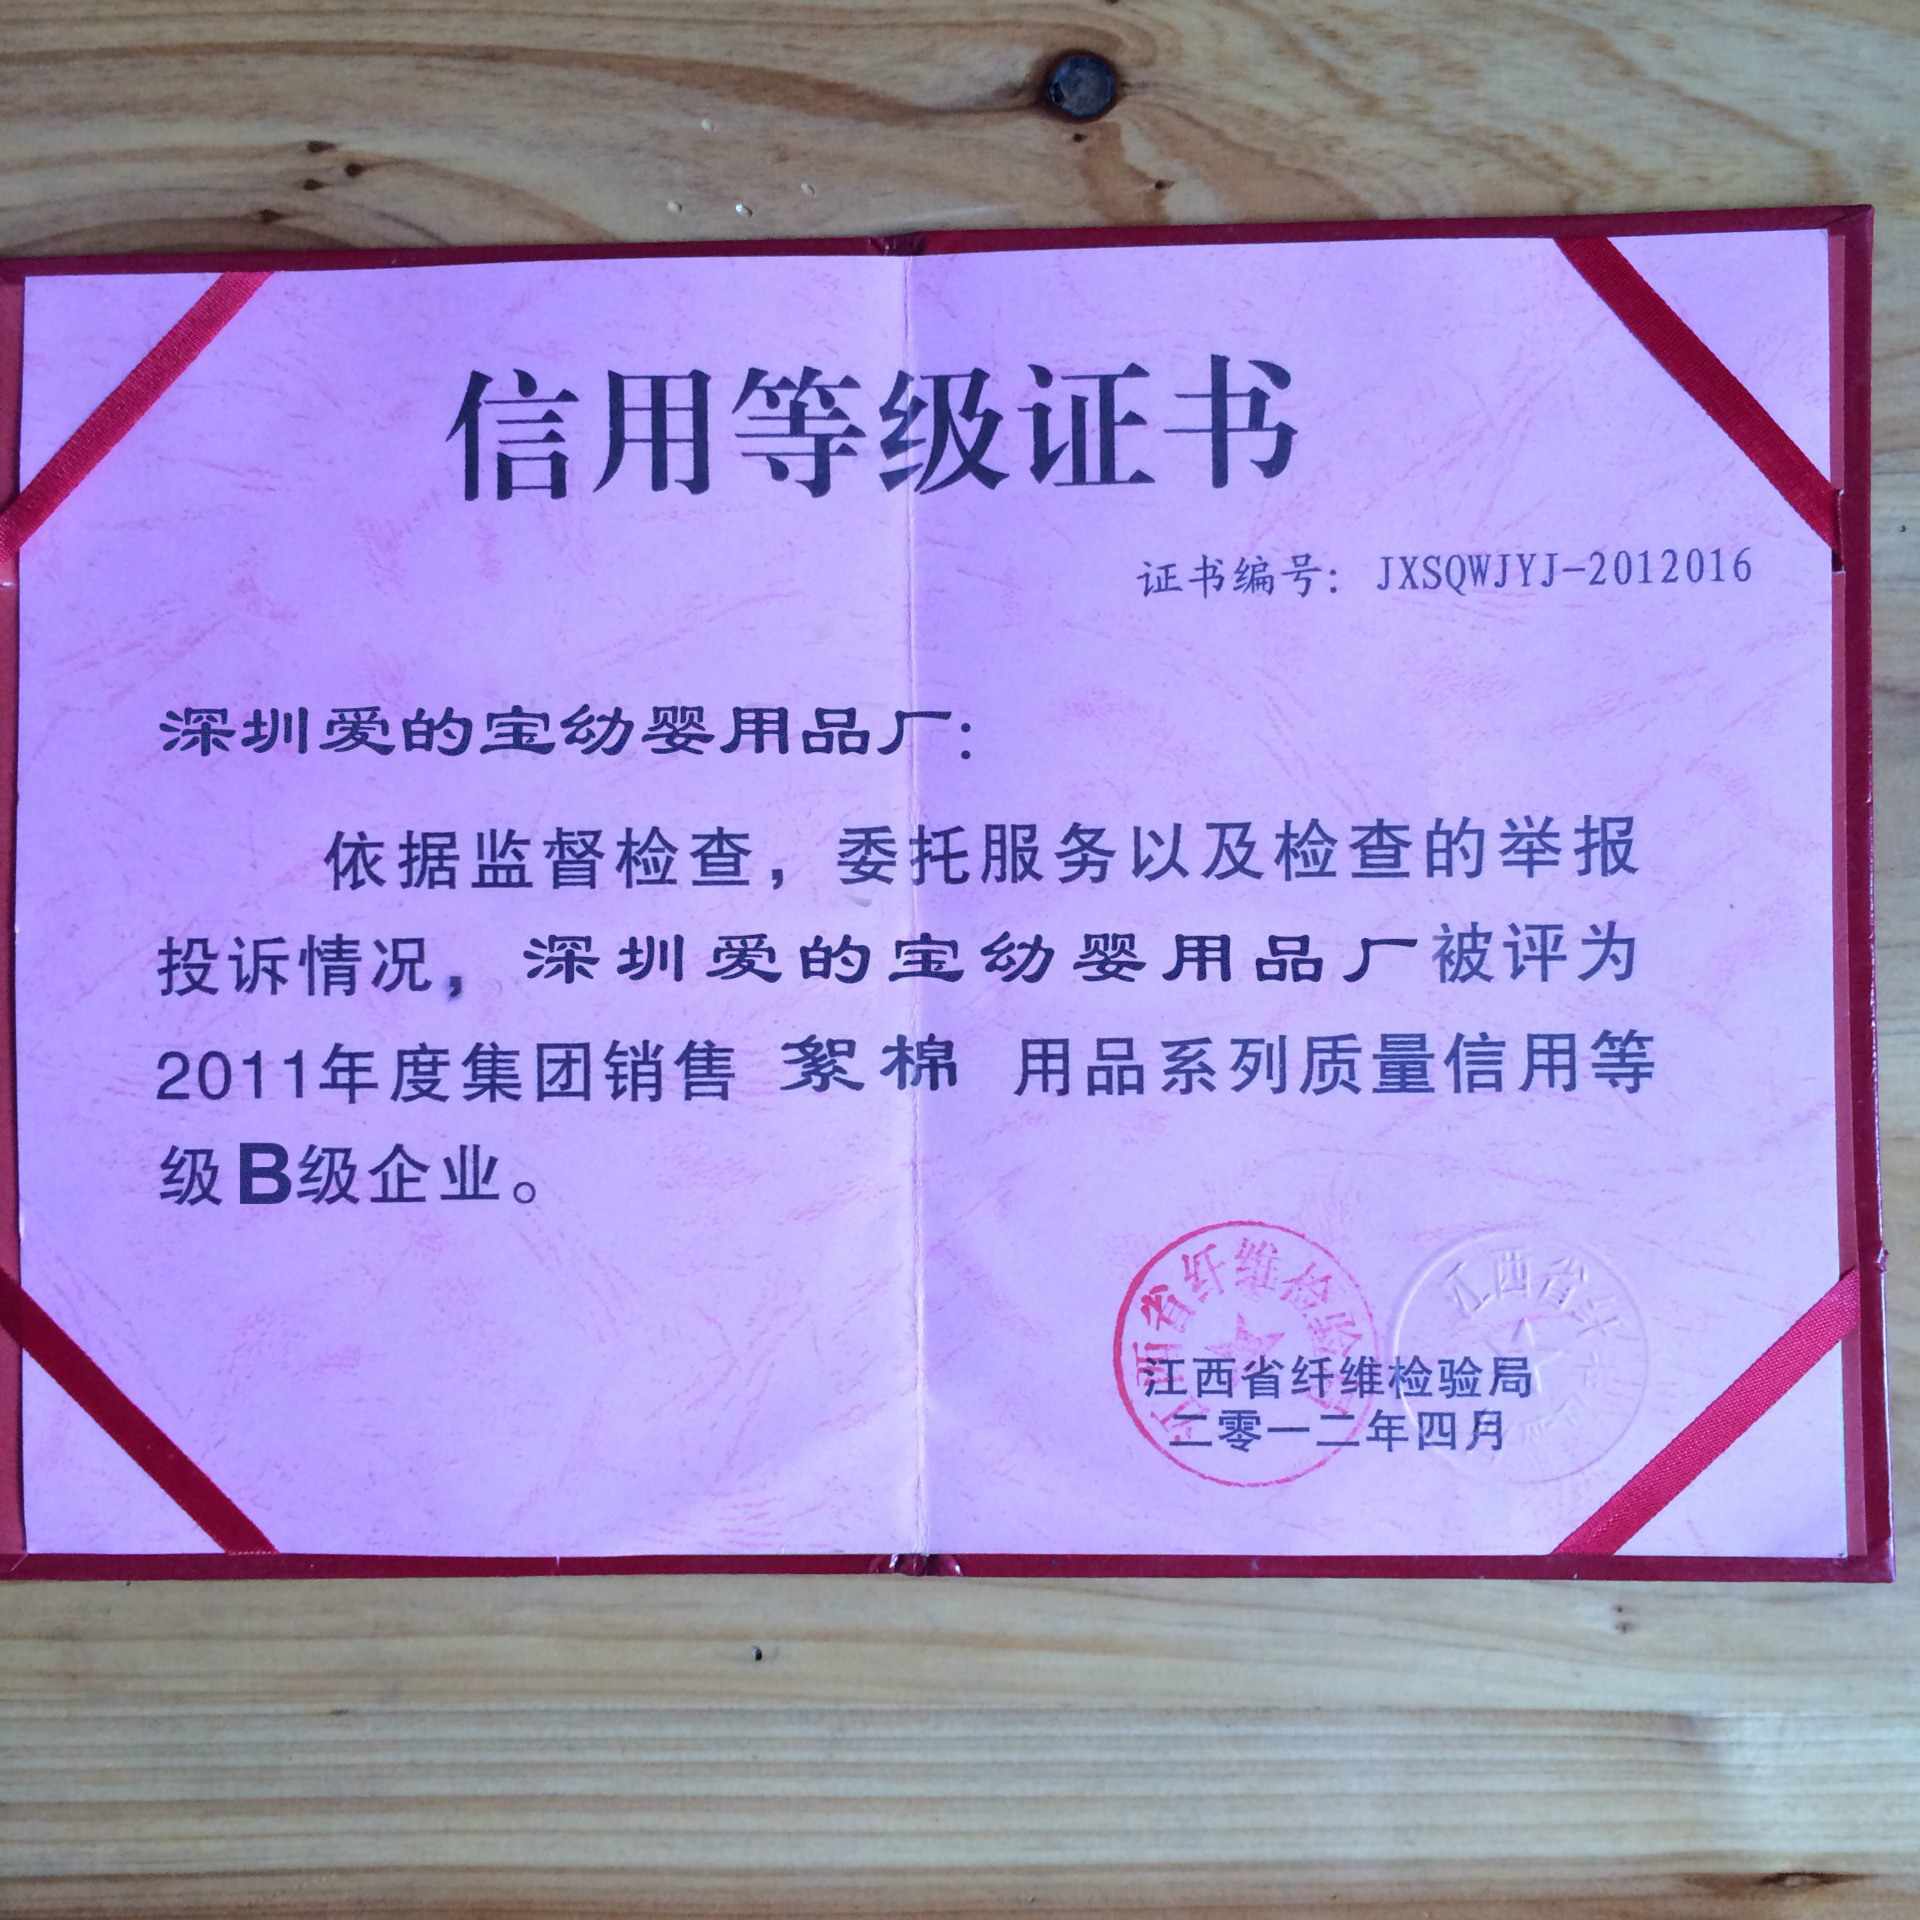 信用等级证书
证书编号：JXSQWJYJ-2012016
深圳爱的宝幼婴用品厂：
依据监督检查，委托服务以及检查的举报
投诉情况，深圳爱的宝幼婴用品厂被评为
2011年度集团销售 絮棉 用品系列质量信用等
级B级企业。
江西省纤维检验局
江西省纤
江西省纤维检验局
二零一二年四月